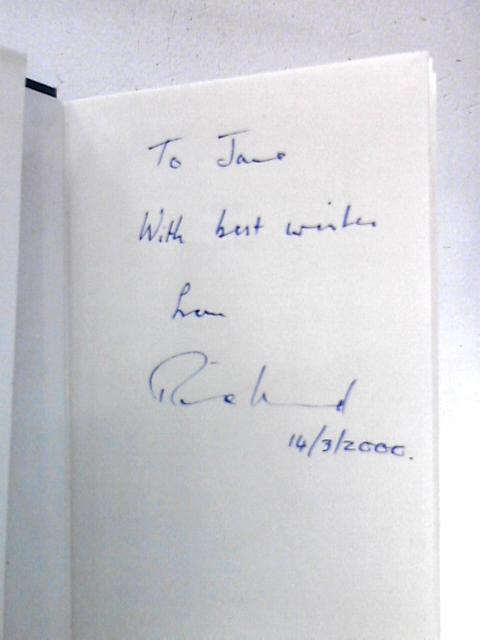 To Jane
With best wishes
from
Richard
14/3/2000.